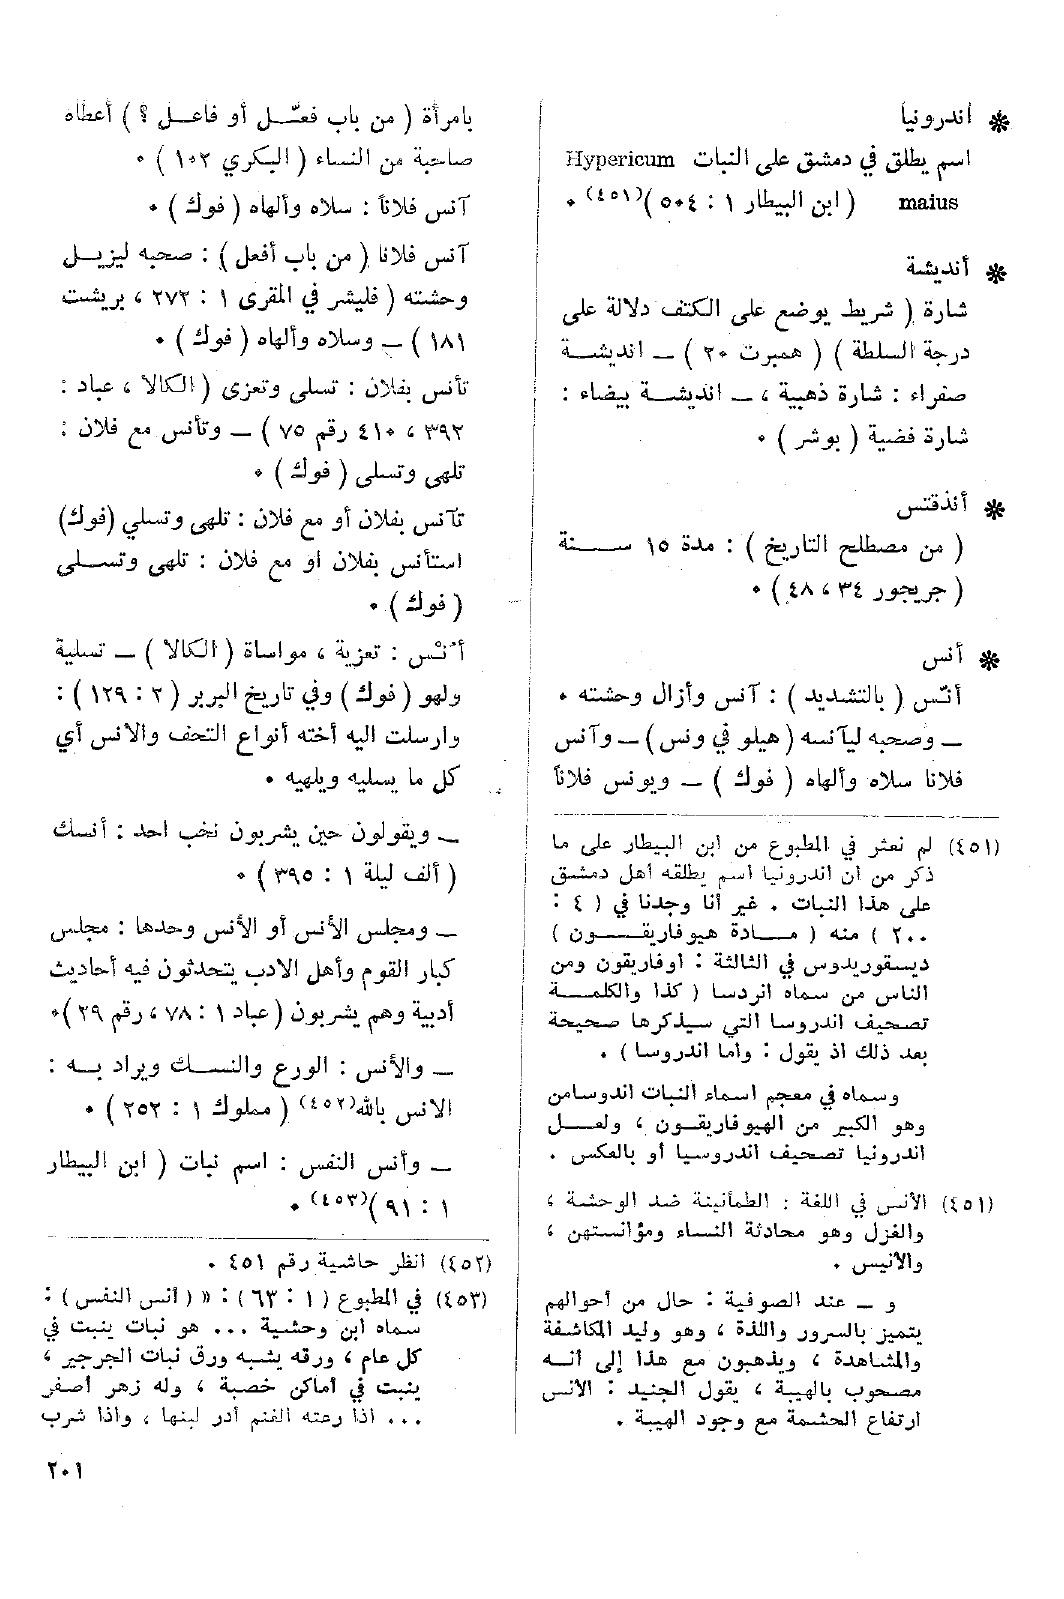 ❋ اندرونيا
اسم يطلق في دمشق على النبات Hypericum
maius ( ابن البيطار ١ : ٥٠٤ )(٤٥١) ٠
❋ أنديشة
شارة ( شريط يوضع على الكتف دلالة على
درجة السلطة ) ( همبرت ٢٠ ) ــ انديشــة
صفراء : شارة ذهبية ، ــ انديشــة بيضاء :
شارة فضية ( بوشر ) ٠
❋ أنذقتس
( من مصطلح التاريخ ) : مدة ١٥ ســـنة
( جريجور ٣٤ ، ٤٨ ) ٠
❋ أنس
أنّس ( بالتشديد ) : آنس وأزال وحشته ٠
ــ وصحبه ليآنسه ( هيلو في ونس ) ــ وآنس
فلانا سلاه وألهاه ( فوك ) ــ ويونس فلاناً
(٤٥١) لم نعثر في المطبوع من ابن البيطار على ما
ذكر من ان اندرونيا اسم يطلقه أهل دمشق
على هذا النبات . غير أنا وجدنا في ( ٤ :
٢٠٠ ) منه ( مــادة هيوفاريقــون )
ديسقوريدوس في الثالثة : أوفاريقون ومن
الناس من سماه انردسا ( كذا والكلمــة
تصحيف اندروسا التي سيذكرها صحيحة
بعد ذلك اذ يقول : وأما اندروسا ) .
وسماه في معجم اسماء النبات اندوسامن
وهو الكبير من الهيوفاريقــون ، ولعــل
اندرونيا تصحيف اندروسيا أو بالعكس .
(٤٥١) الأنس في اللغة : الطمأنينة ضد الوحشة ،
والغزل وهو محادثة النساء ومؤانستهن ،
والانيس .
و ــ عند الصوفية : حال من أحوالهم
يتميز بالسرور واللذة ، وهو وليد المكاشفة
والمشاهدة ، ويذهبون مع هذا إلى أنــه
مصحوب بالهيبة ، يقول الجنيد : الانس
ارتفاع الحشمة مع وجود الهيبة .
بامرأة ( من باب فعّــل أو فاعــل ؟ ) أعطاه
صاحبة من النساء ( البكري ١٠٢ ) ٠
آنس فلاناً : سلاه وألهاه ( فوك ) ٠
آنس فلانا ( من باب أفعل ) : صحبه ليزيــل
وحشته ( فليشر في المقرى ١ : ٢٧٢ ، بريشت
١٨١ ) ــ وسلاه وألهاه ( فوك ) ٠
تأنس بفلان : تسلى وتعزى ( الكالا ، عباد :
٣٩٢ ، ٤١٠ رقم ٧٥ ) ــ وتأنس مع فلان :
تلهى وتسلى ( فوك ) ٠
تآنس بفلان أو مع فلان : تلهى وتسلي (فوك)
استأنس بفلان أو مع فلان : تلهى وتســلى
( فوك ) ٠
أُنْس : تعزية ، مواساة ( الكالا ) ــ تسلية
ولهو ( فوك ) وفي تاريخ البربر ( ٢ : ١٢٩ ) :
وارسلت اليه أخته أنواع التحف والانس أي
كل ما يسليه ويلهيه ٠
ــ ويقولون حين يشربون نخب احد : أنسك
( ألف ليلة ١ : ٣٩٥ ) ٠
ــ ومجلس الأنس أو الأنس وحدها : مجلس
كبار القوم وأهل الادب يتحدثون فيه أحاديث
أدبية وهم يشربون ( عباد ١ : ٧٨ ، رقم ٢٩ )٠
ــ والأنس : الورع والنســك ويراد بــه :
الانس بالله(٤٥٢) ( مملوك ١ : ٢٥٢ ) ٠
ــ وأنس النفس : اسم نبات ( ابن البيطار
١ : ٩١ )(٤٥٣) ٠
(٤٥٢) انظر حاشية رقم ٤٥١ .
(٤٥٣) في المطبوع ( ١ : ٦٣ ) : « ( أنس النفس ) :
سماه ابن وحشية ... هو نبات ينبت في
كل عام ، ورقه يشبه ورق نبات الجرجير ،
ينبت في أماكن خصبة ، وله زهر أصفر
... اذا رعته الغنم أدر لبنها ، واذا شرب
٢٠١